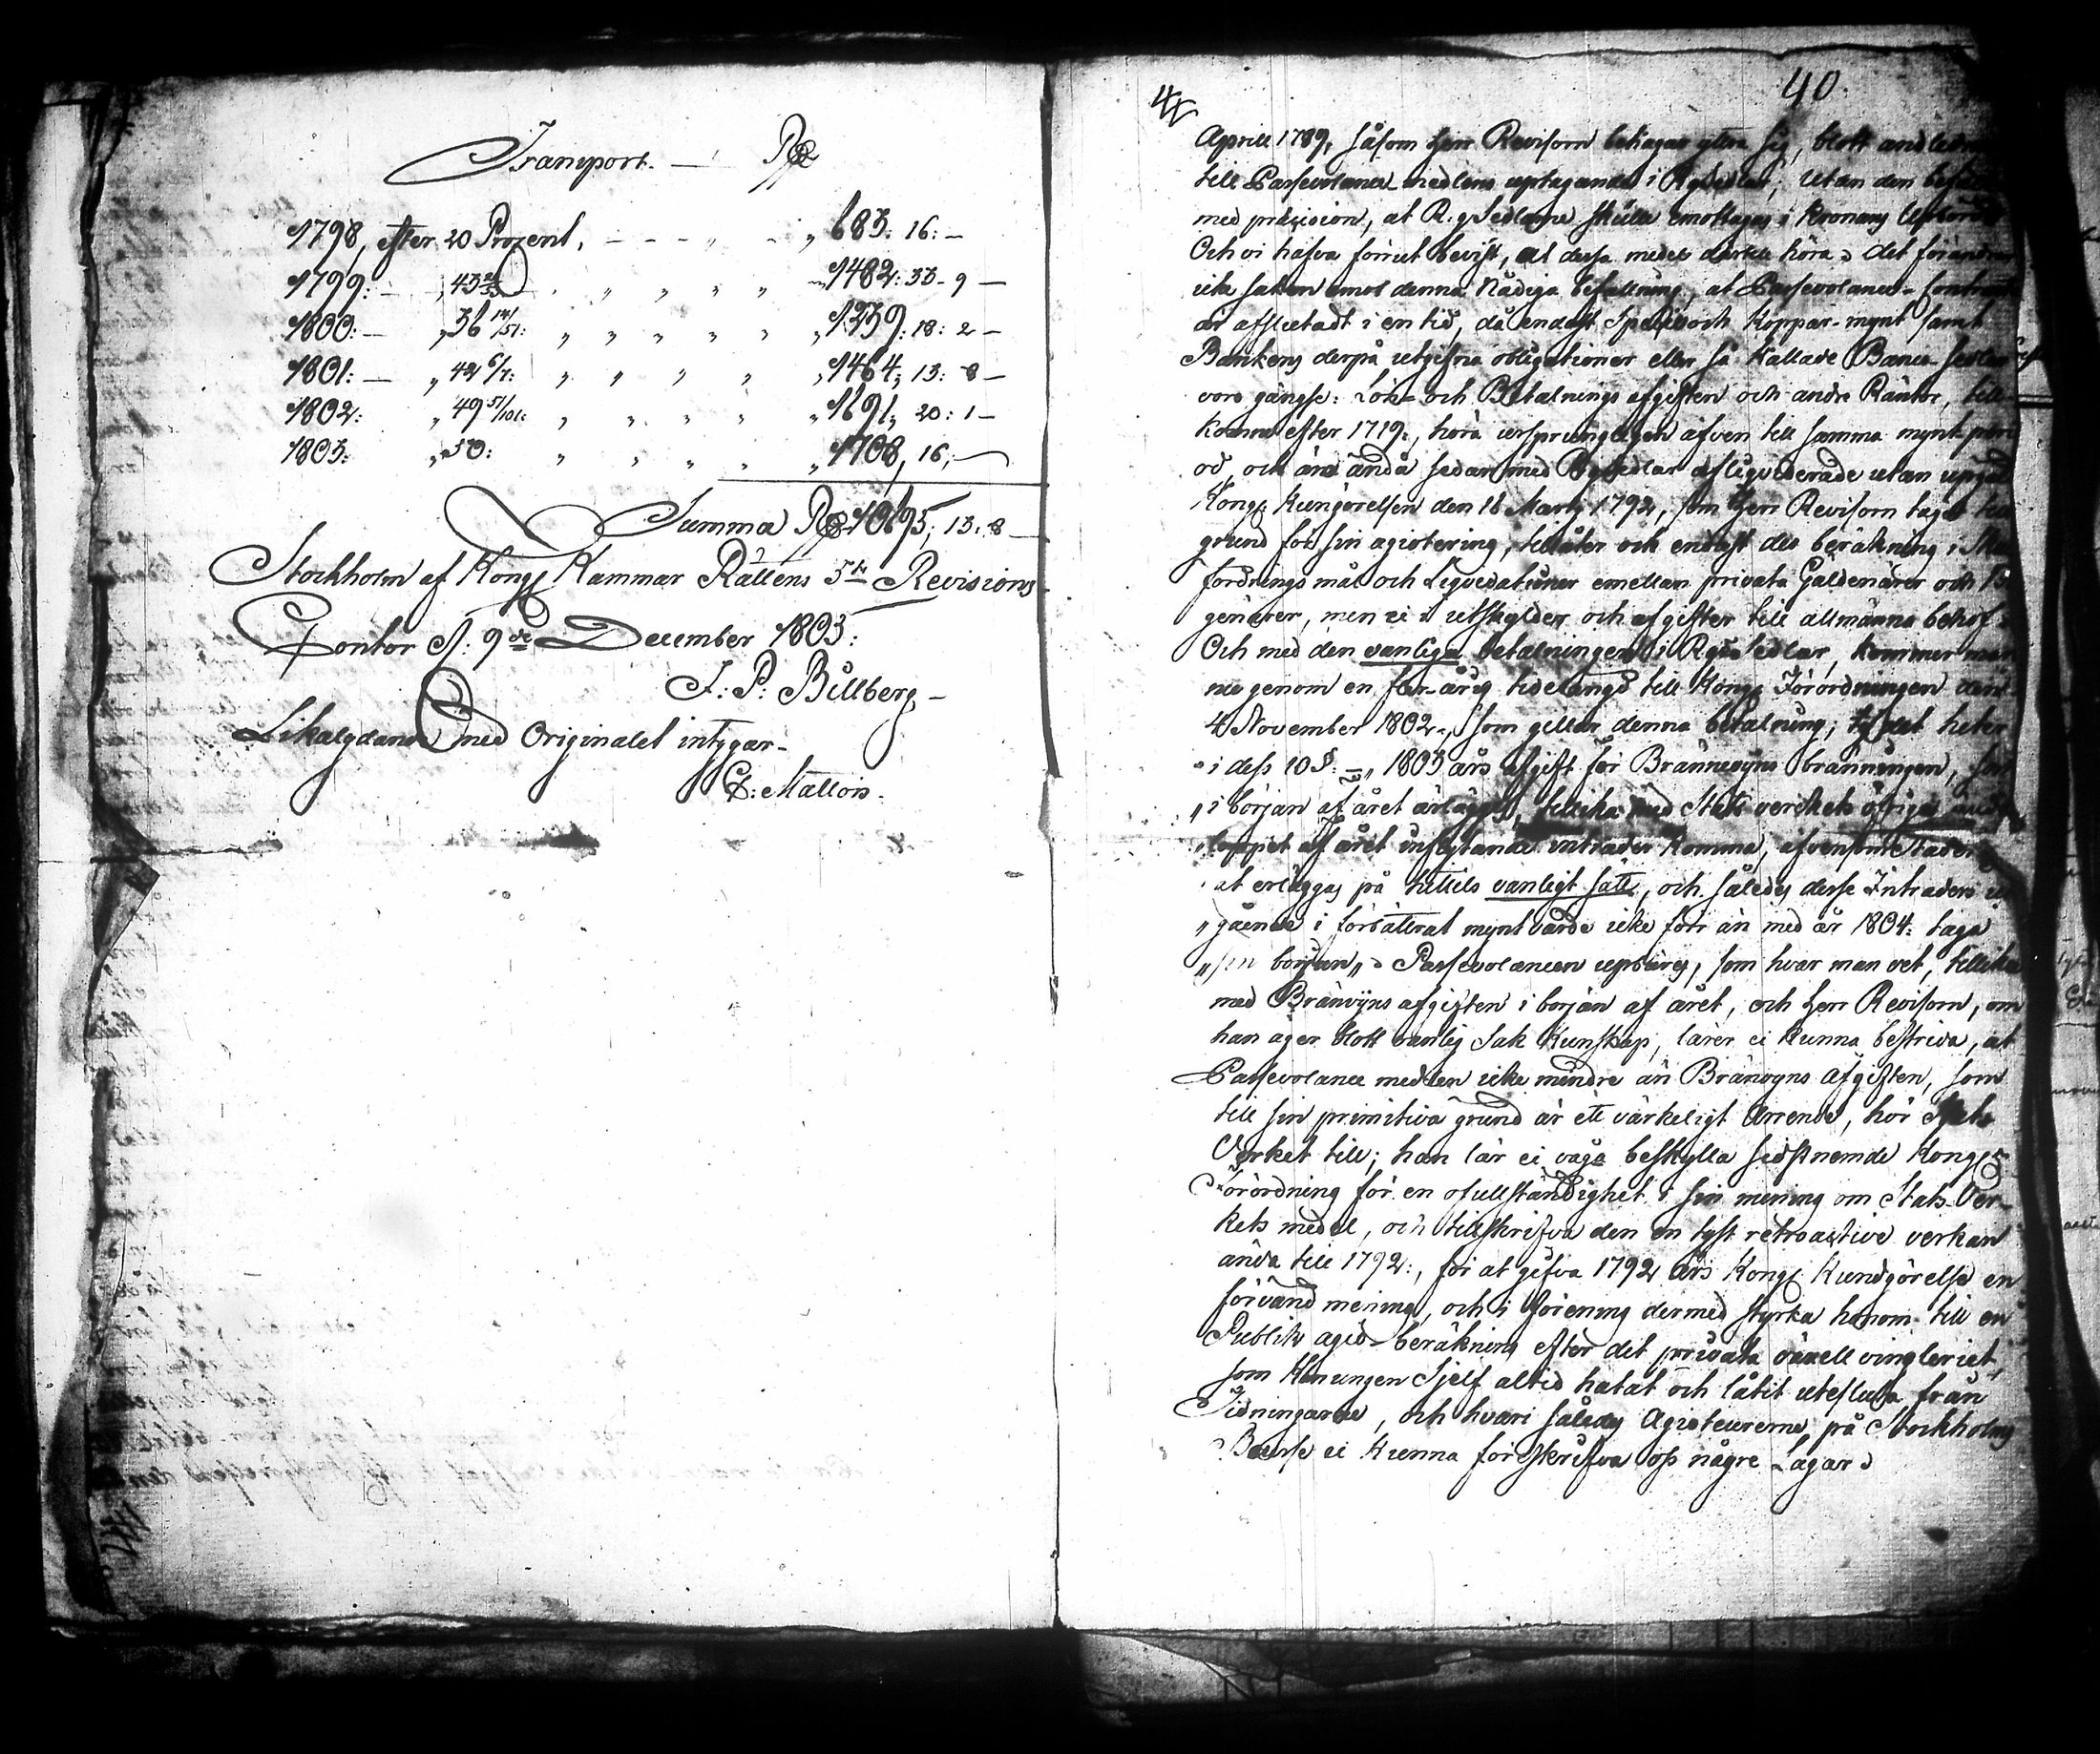 Transport. — Rd
1798, efter 20 Prozent, - - - „ - „ 683: 16: —
1799: — „ 43 „ „ „ „ „ 1482: 33 - 9 —
1800: — „ 36 14/51: „ „ „ „ „ „ 1239: 18: 2 —
1801: — „ 42 6/7: „ „ „ „ „ 1464; 13: 8 —
1802: „ 49 51/101: „ „ „ „ „ 1691; 20: 1 —
1803: „ 50: „ „ „ „ „ 1708, 16; —
Summa Rd 10695; 13: 8 —
Stockholm af Kongl Kammar Rättens 5te Revisions
Contor d. 9de December 1803:
J: P: Billberg —
Likalydande med Originalet intygar —
G: Mallois.
40.
Aprill 1789, såsom Herr Revisorn behagar yttra sig, blott
till Passevolance medlens uptagande i Rgsedlar; utan den
med præcision, at R.gSedlarne skulle emottagas i Kronans
Och vi hafva förrut bevist, at dessa medel dertill höra. Det
icke saken emot denna Nådiga befallning, at Passevolance-
är afslutadt i en tid, då endast Specie och Koppar-mynt samt
Bankens derpå utgifna obligationer eller så kallade Banco-
voro gängse: Lön- och Betalnings afgiften och andre Räntor, till
komne efter 1719:, höra ursprungligen äfven till samma mynt
od, och äro ändå sedan med Rgsedlar afliqviderade utan
Kongl Kungörelsen den 16 Martij 1792, som Herr Revisorn tager
grund for sin agiotering, tillåter ock endast des beräkning i
fordrings mål och Liqvidationer emellan privata Gäldenärer och
genärer, men ei i utskylder och afgifter till allmänna behof.
Och med den vanliga betalningen i Rgssedlar, kommer man
nu genom en tidelängd till Kongl Förordningen den
4 November 1802, som gillar denna betalning; ty det heter
i dess 10 §: „ 1803 års afgift för Brännevijns bränningen,
„ i början af året erlägges, tillika med Stats verckets öfrige
„ loppet af året inflytande intrader komma, äfvensom
at erläggas på hittils vanligt sätt, och således desse Intraders
„ gående i förbättrat myntvärde icke förr än med år 1804: taga
„ sin början „ Passevolancen upbäres, som hvar man vet, tillika
med Bränvijns afgiften i början af året, och Herr Revisorn, om
han äger blott vanlig Sak Kunskap, lärer ei kunna bestrida, at
Passevolance medlen icke mindre än Bränvyns afgiften, som
till sin primitiva grund är ett värkeligt Arrende, hör Stats
Verket till; han lär ei våga beskylla sidstnemde Kongl
Förordning för en ofullständighet i sin mening om Stats Ver-
kets medel, och tillskrifva den en tyst retroactive verkan
ända till 1792:, för at gifva 1792 års Kongl Kundgörelse en
förvänd mening, och i förening dermed styrka honom till en
Publik agio-beräkning efter dit privata växell vingleriet
som Konungen Sjelf altid hatat och låtit utesluta från
Tidningarne, och hvari således Agioteurerne på Stockholms
Beurse ei kunna föreskrifva oss någre Lagar.